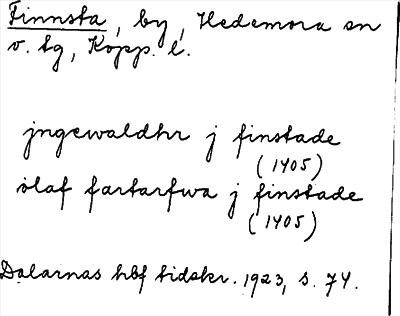 Finnsta, by, Hedemora sn
v. tg, Kopp. l.
jngewaldhr j finstade
(1405)
olaf fartarfwa j finstade
(1405)
Dalarnas hbf tidskr. 1923, s. 74.